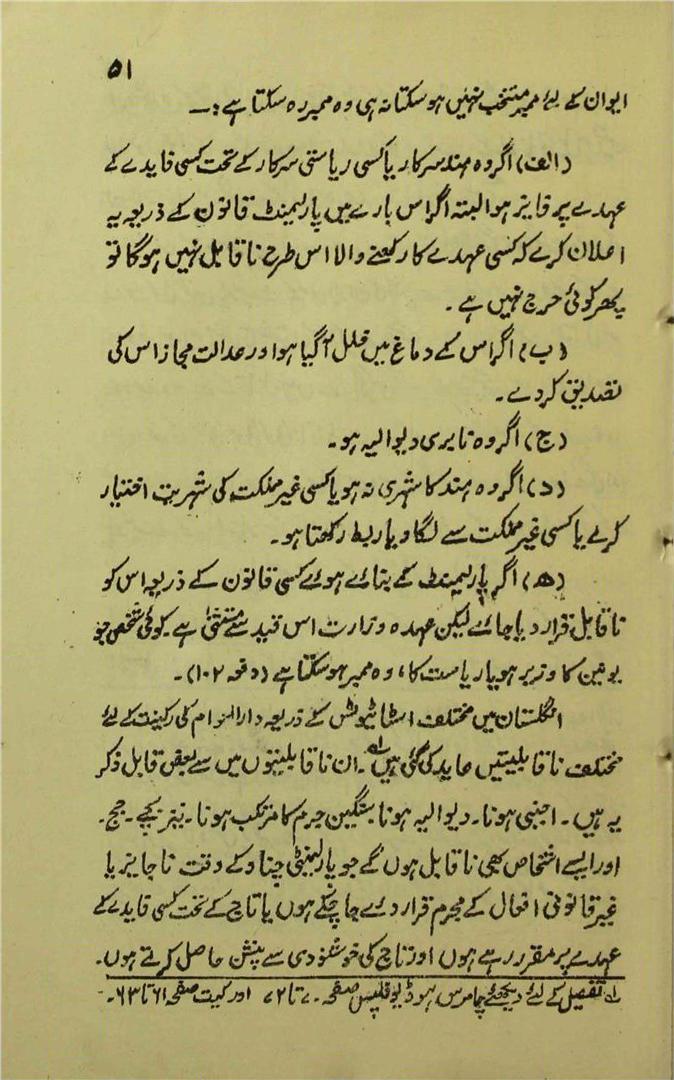 ۵۱
ایوان کے لئے ممبر منتخب نہیں ہو سکتا نہ ہی وہ ممبر رہ سکتا ہے :۔
(الف) اگر وہ ہند سرکار یا کسی ریاستی سرکار کے تحت کسی فایدے کے
عہدے پر فایز ہو البتہ اگر اس بارے میں پارلیمنٹ قانون کے ذریعہ یہ
اعلان کرے کہ کسی عہدے کا رکھنے والا اس طرح نا قابل نہیں ہوگا تو
پھر کوئی حرج نہیں ہے ۔
(ب) اگر اس کے دماغ میں خلل آگیا ہو اور عدالت مجاز اس کی
تصدیق کر دے ۔
(ج) اگر وہ نا بری دیوالیہ ہو ۔
(د) اگر وہ ہند کا شہری نہ ہو یا کسی غیر مملکت کی شہریت اختیار
کرلے یا کسی غیر مملکت سے لگاو یا ربط رکھتا ہو ۔
(ھ) اگر پارلیمنٹ کے بنائے ہوئے کسی قانون کے ذریعہ اس کو
نا قابل قرار دیا جائے لیکن عہدہ وزارت اس قید سے مستثنیٰ ہے ۔ کوئی شخص جو
یونین کا وزیر ہو یا ریاست کا ، وہ ممبر ہو سکتا ہے (دفعہ ۱۰۲) ۔
انگلستان میں مختلف اسٹاٹیوٹس کے ذریعہ دارالعوام کی رکنیت کے لئے
مختلف نا قابلیتیں عاید کی گئی ہیں ؎۱ ۔ ان نا قابلیتوں میں سے بعض قابل ذکر
یہ ہیں ۔ اجنبی ہونا ۔ دیوالیہ ہونا ۔ سنگین جرم کا مرتکب ہونا ۔ نیز بچے ۔ جج ۔
اور ایسے اشخاص بھی نا قابل ہوں گے جو پارلیمنٹی چناو کے وقت نا جایز یا
غیر قانونی افعال کے مجرم قرار دئے جا چکے ہوں یا تاج کے تحت کسی فایدے کے
عہدے پر مقرر رہے ہوں اور تاج کی خوشنودی سے پنشن حاصل کرتے ہوں ۔
؎۱ تفصیل کے لئے دیکھئے چامرس ہوڈ فلپس صفحہ ۷۰ تا ۷۲ اور کیتھ صفحہ ۶۱ تا ۶۳ ۔